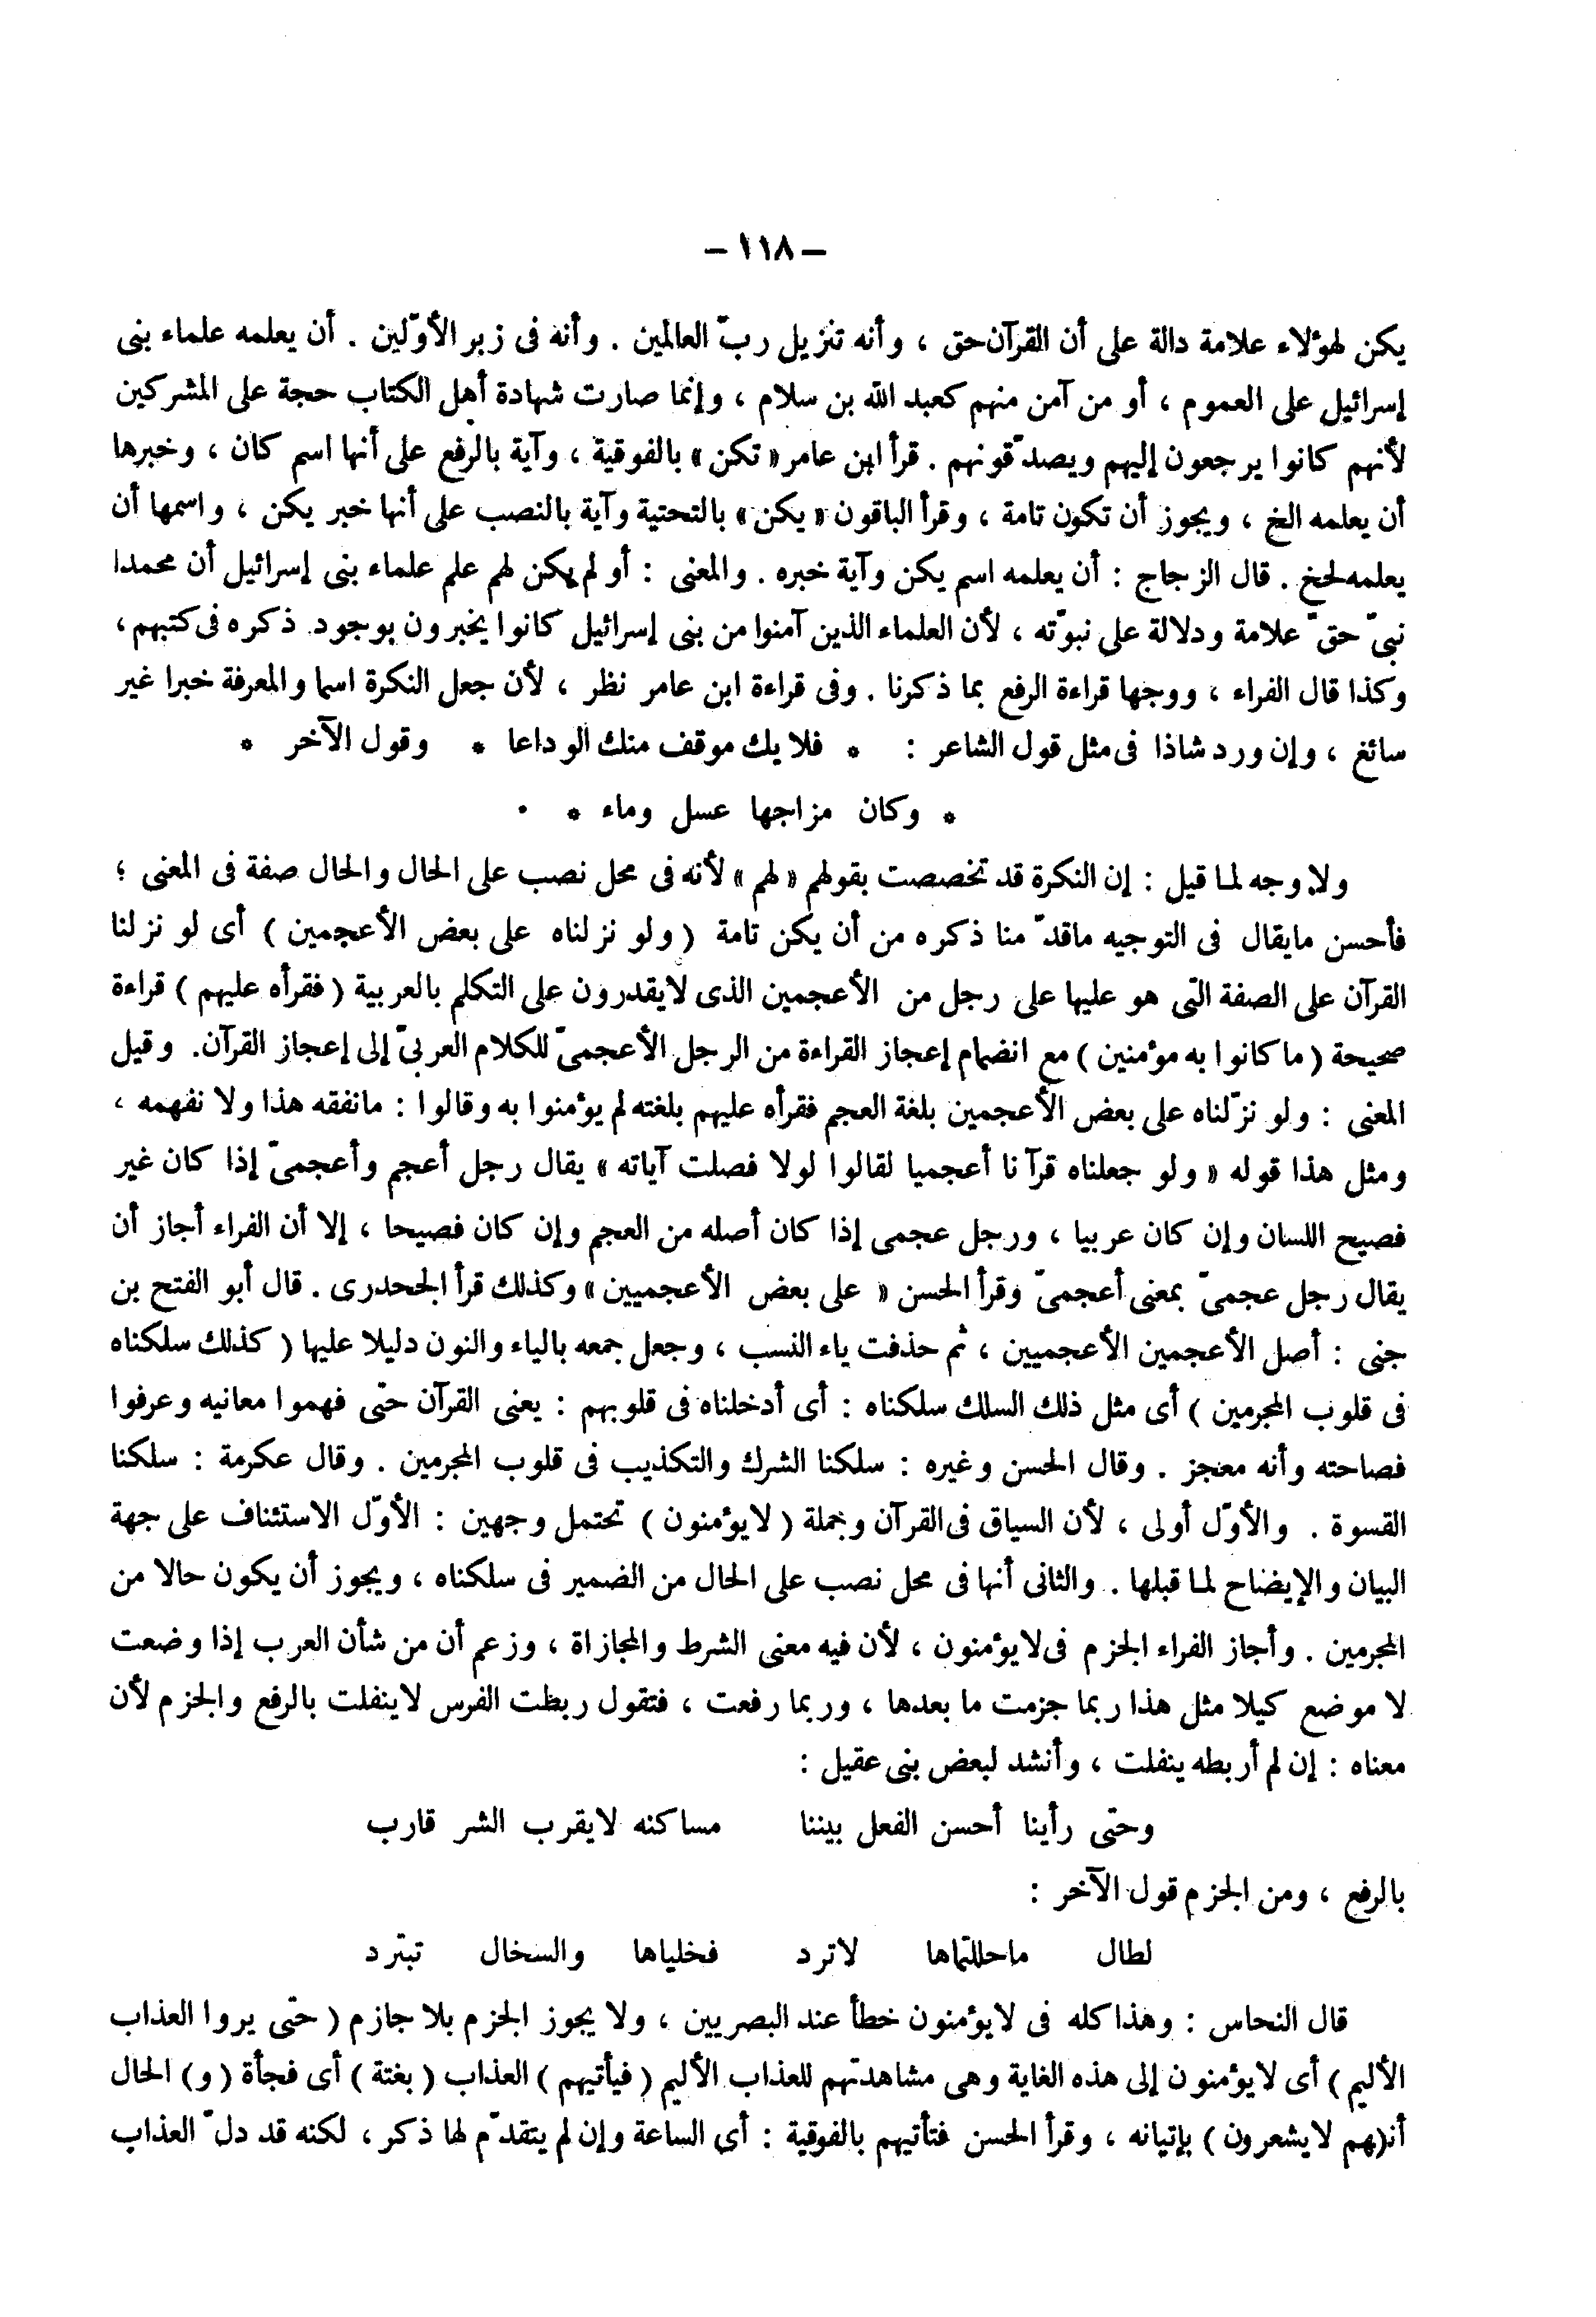 – ١١٨ –
يكن لهؤلاء علامة دالة على أن القرآن حق ، وأنه تنزيل ربّ العالمين . وأنه فى زبر الأوّلين . أن يعلمه علماء بنى
إسرائيل على العموم ، أو من آمن منهم كعبد الله بن سلام ، وإنما صارت شهادة أهل الكتاب حجة على المشركين
لأنهم كانوا يرجعون إليهم ويصدّقونهم . قرأ ابن عامر « تكن » بالفوقية ، وآية بالرفع على أنها اسم كان ، وخبرها
أن يعلمه الخ ، ويجوز أن تكون تامة ، وقرأ الباقون « يكن » بالتحتية وآية بالنصب على أنها خبر يكن ، واسمها أن
يعلمه لخ . قال الزجاج : أن يعلمه اسم يكن وآية خبره . والمعنى : أو لم يكن لهم علم علماء بنى إسرائيل أن محمدا
نبىّ حقّ علامة ودلالة على نبوّته ، لأن العلماء الذين آمنوا من بنى إسرائيل كانوا يخبرون بوجود ذكره فى كتبهم ،
وكذا قال الفراء ، ووجها قراءة الرفع بما ذكرنا . وفى قراءة ابن عامر نظر ، لأن جعل النكرة اسما والمعرفة خبرا غير
سائغ ، وإن ورد شاذا فى مثل قول الشاعر : * فلا يك موقف منك الوداعا * وقول الآخر *
* وكان مزاجها عسل وماء * ·
ولا وجه لما قيل : إن النكرة قد تخصصت بقولهم « لهم » لأنه فى محل نصب على الحال والحال صفة فى المعنى ؛
فأحسن مايقال فى التوجيه ماقدّمنا ذكره من أن يكن تامة ( ولو نزلناه على بعض الأعجمين ) أى لو نزلنا
القرآن على الصفة التى هو عليها على رجل من الأعجمين الذى لايقدرون على التكلم بالعربية ( فقرأه عليهم ) قراءة
صحيحة ( ما كانوا به مؤمنين ) مع انضمام إعجاز القراءة من الرجل الأعجمىّ للكلام العربىّ إلى إعجاز القرآن. وقيل
المعنى : ولو نزّلناه على بعض الأعجمين بلغة العجم فقرأه عليهم بلغته لم يؤمنوا به وقالوا : مانفقه هذا ولا نفهمه ،
ومثل هذا قوله « ولو جعلناه قرآنا أعجميا لقالوا لولا فصلت آياته » يقال رجل أعجم وأعجمىّ إذا كان غير
فصيح اللسان وإن كان عربيا ، ورجل عجمى إذا كان أصله من العجم وإن كان فصيحا ، إلا أن الفراء أجاز أن
يقال رجل عجمىّ بمعنى أعجمىّ وقرأ الحسن « على بعض الأعجميين » وكذلك قرأ الجحدرى . قال أبو الفتح بن
جنى : أصل الأعجمين الأعجميين ، ثم حذفت ياء النسب ، وجعل جمعه بالياء والنون دليلا عليها ( كذلك سلكناه
فى قلوب المجرمين ) أى مثل ذلك السلك سلكناه : أى أدخلناه فى قلوبهم : يعنى القرآن حتى فهموا معانيه وعرفوا
فصاحته وأنه معجز . وقال الحسن وغيره : سلكنا الشرك والتكذيب فى قلوب المجرمين . وقال عكرمة : سلكنا
القسوة . والأوّل أولى ، لأن السياق فى القرآن وجملة ( لايؤمنون ) تحتمل وجهين : الأوّل الاستئناف على جهة
البيان والإيضاح لما قبلها . والثانى أنها فى محل نصب على الحال من الضمير فى سلكناه ، ويجوز أن يكون حالا من
المجرمين . وأجاز الفراء الجزم فى لايؤمنون ، لأن فيه معنى الشرط والمجازاة ، وزعم أن من شأن العرب إذا وضعت
لا موضع كيلا مثل هذا ربما جزمت ما بعدها ، وربما رفعت ، فتقول ربطت الفرس لاينفلت بالرفع والجزم لأن
معناه : إن لم أربطه ينفلت ، وأنشد لبعض بنى عقيل :
وحتى رأينا أحسن الفعل بيننا مساكنه لايقرب الشر قارب
بالرفع ، ومن الجزم قول الآخر :
لطال ماحللتماها لاترد فخلياها والسخال تبترد
قال النحاس : وهذا كله فى لايؤمنون خطأ عند البصريين ، ولا يجوز الجزم بلا جازم ( حتى يروا العذاب
الأليم ) أى لايؤمنون إلى هذه الغاية وهى مشاهدتهم للعذاب الأليم ( فيأتيهم ) العذاب ( بغتة ) أى فجأة ( و) الحال
أن(هم لايشعرون ) بإتيانه ، وقرأ الحسن فتأتيهم بالفوقية : أى الساعة وإن لم يتقدّم لها ذكر ، لكنه قد دلّ العذاب